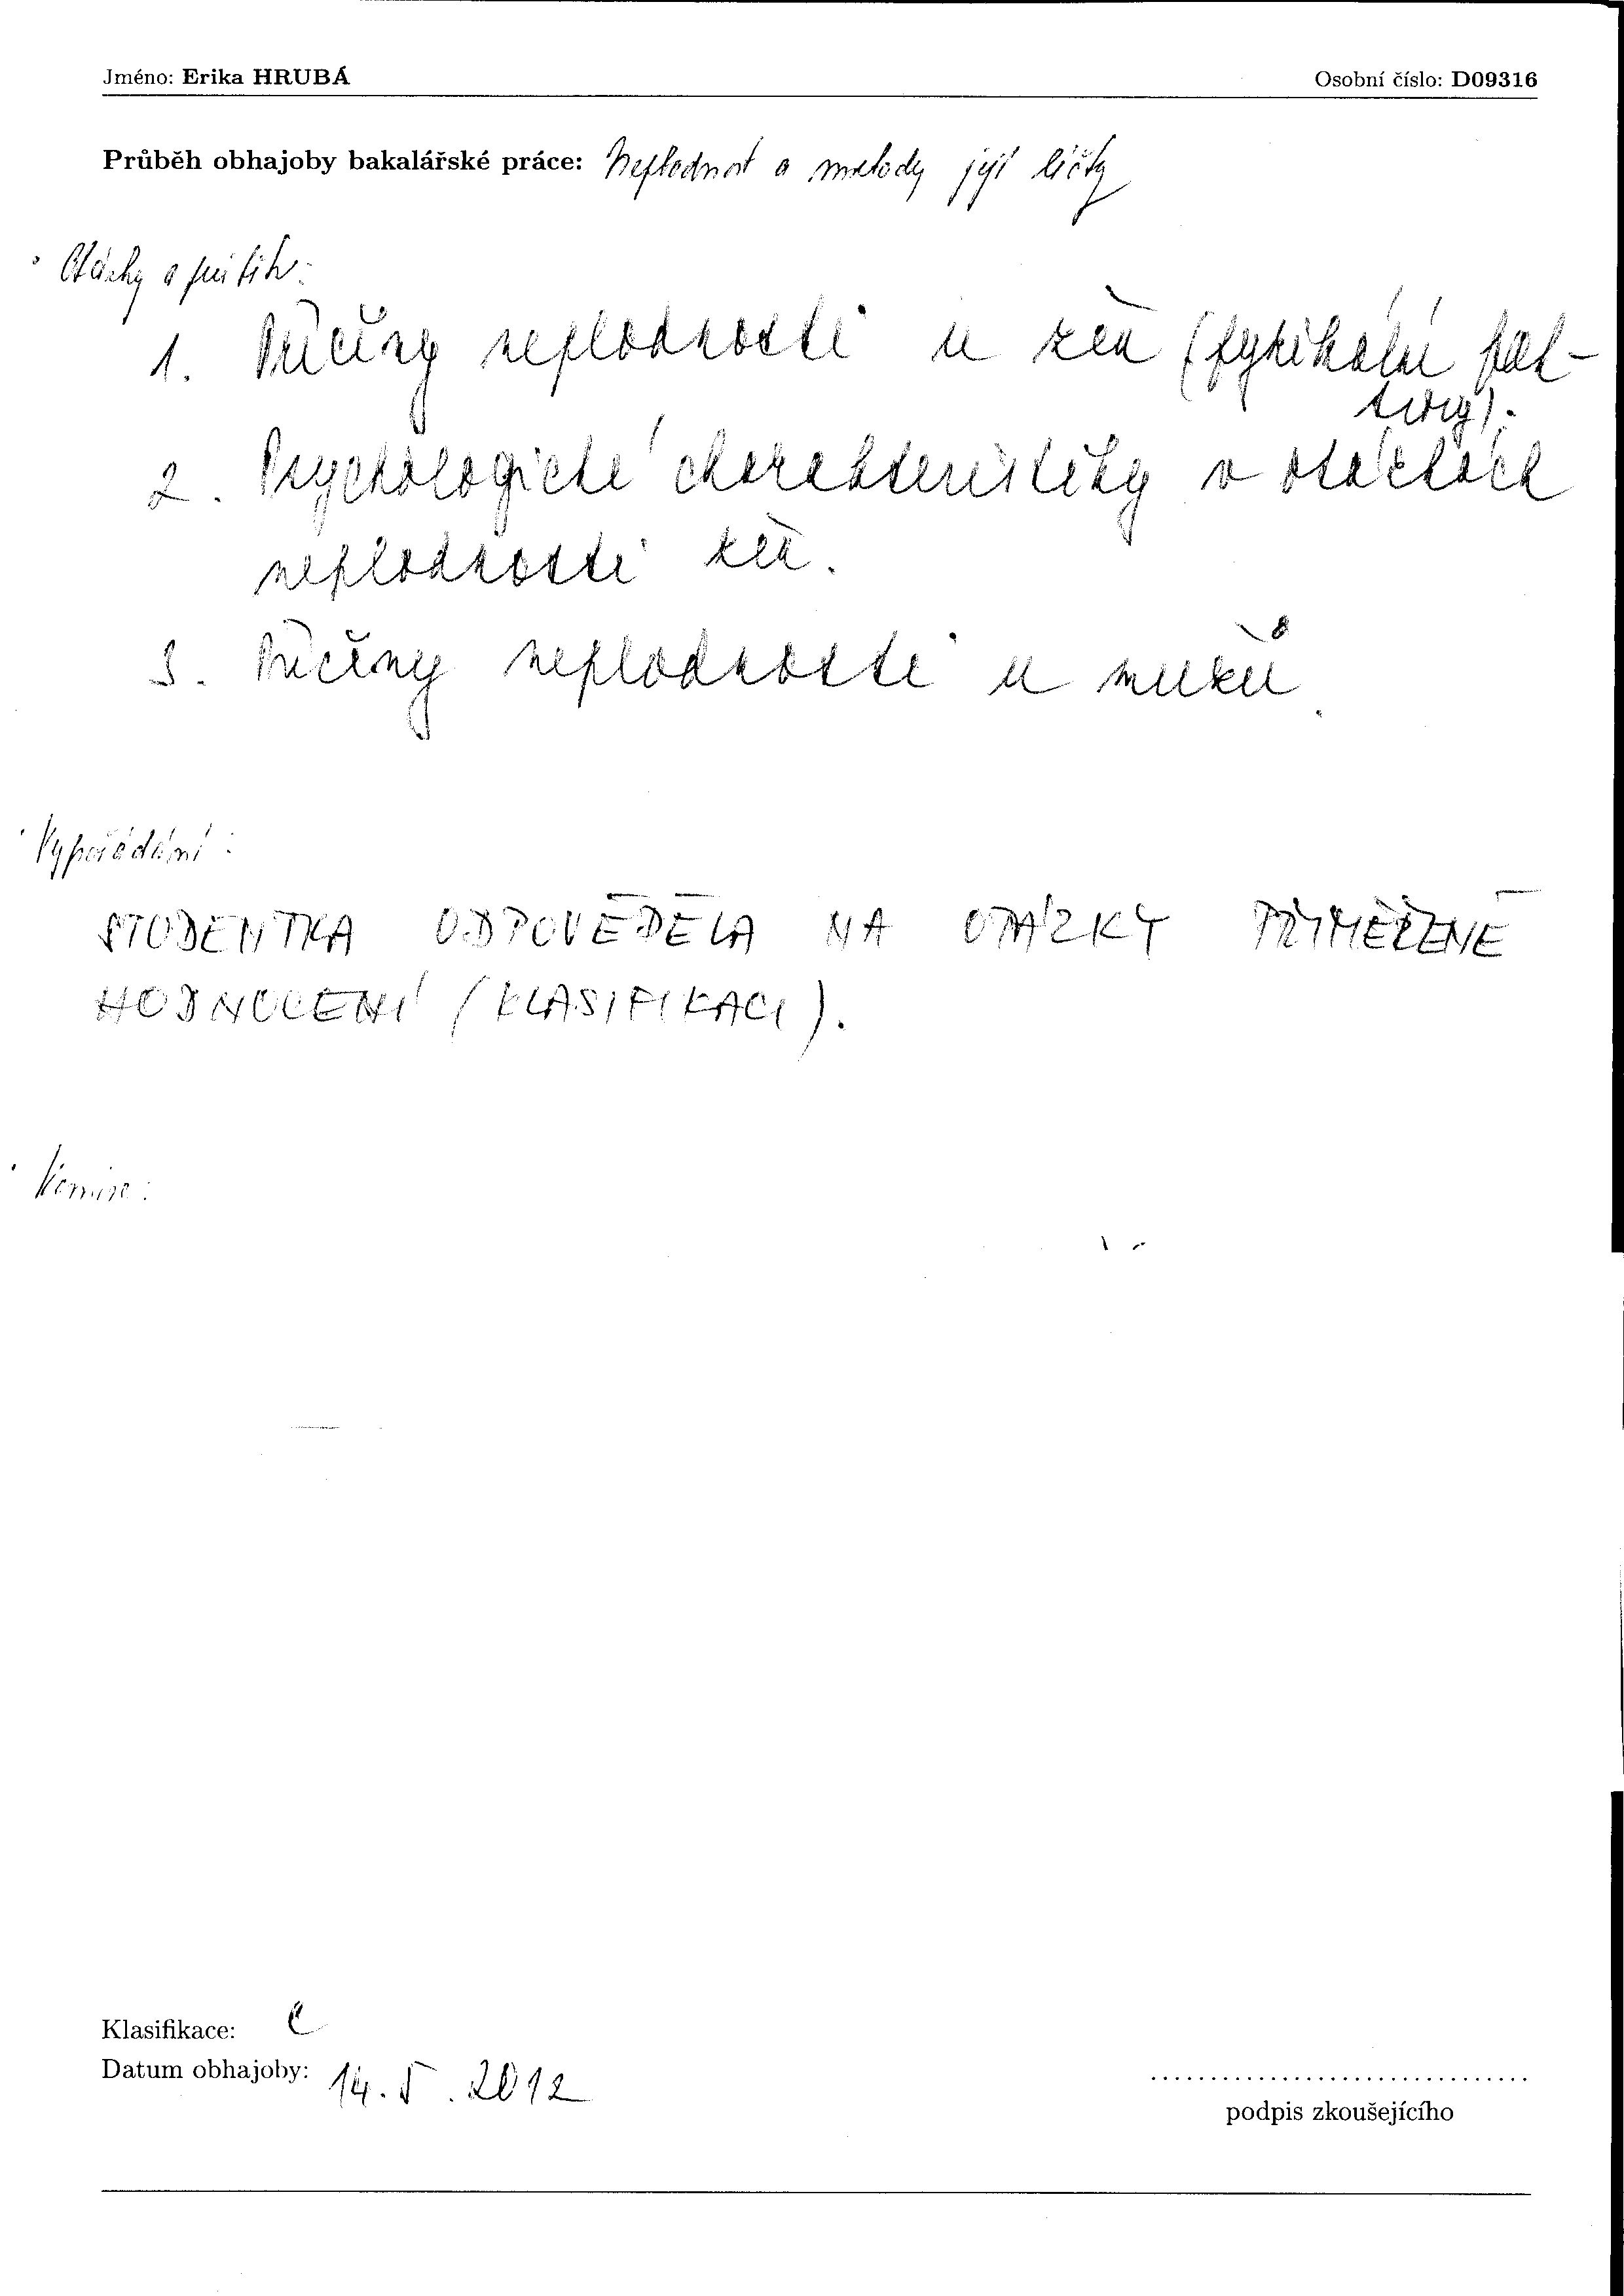 Jméno: Erika HRUBÁ Osobní číslo: D09316
Průběh obhajoby bakalářské práce: Neplodnost a metody její léčby
Otázky a průběh:
1. Příčiny neplodnosti u žen (fyzikální fak-
tory).
2. Psychologické charakteristiky v otázkách
neplodnosti žen.
3. Příčiny neplodnosti u mužů.
Vypořádání:
STUDENTKA ODPOVĚDĚLA NA OTÁZKY PŘIMĚŘENĚ
HODNOCENÍ (KLASIFIKACI).
Komise:
Klasifikace: C
Datum obhajoby: 14. 5. 2012
podpis zkoušejícího